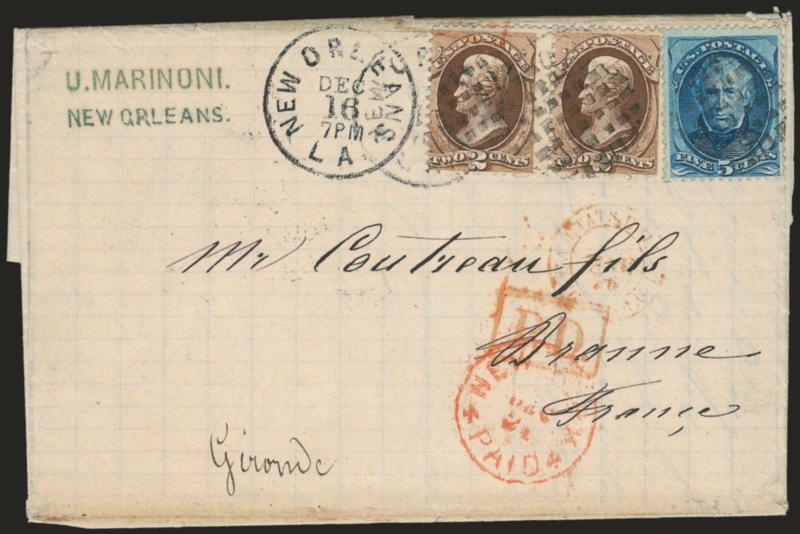 U. MARINONI.
NEW ORLEANS.
NEW ORLEANS
DEC
16
7PM
LA.
U.S. POSTAGE
TWO 2 CENTS
U.S. POSTAGE
TWO 2 CENTS
U.S. POSTAGE
FIVE 5 CENTS
Mr Coutreau fils
P.D.
Branne
France
NE
PAID 4
Gironde